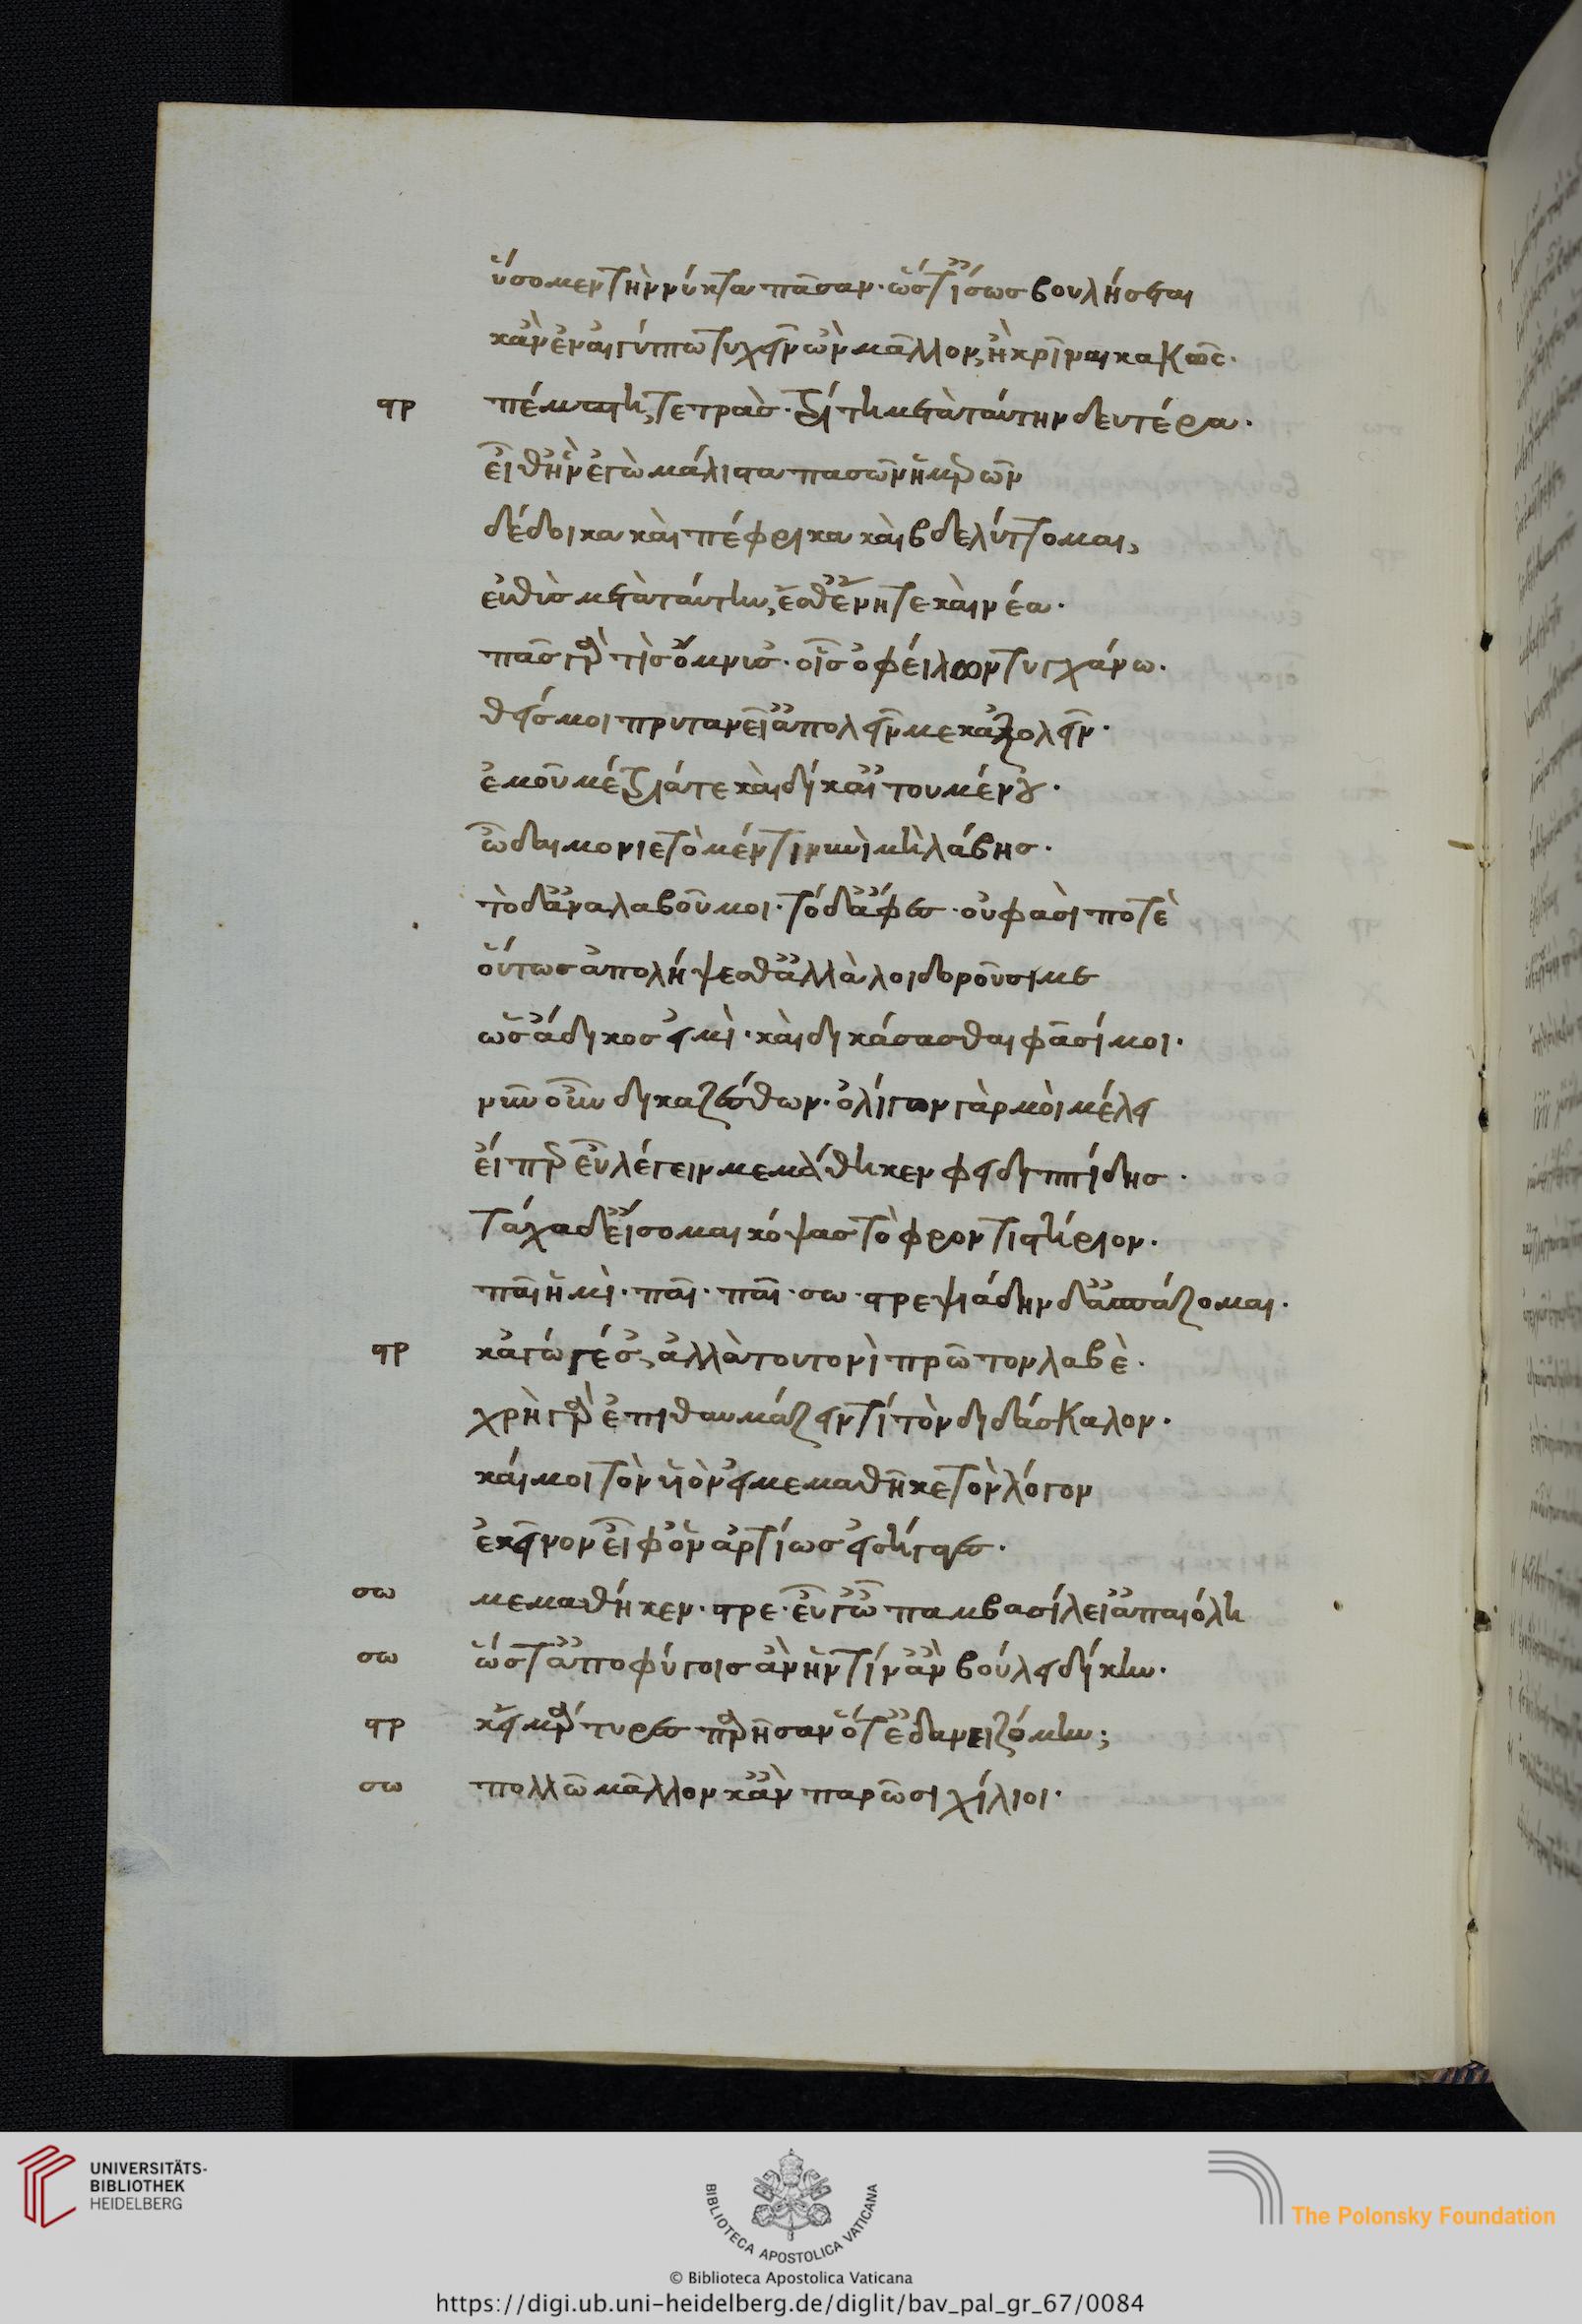 ὕσομεν τὴν νύκτα πᾶσαν· ὥστ' ἴσως βουλήσεται
κἂν ἐν αἰγύπτω τυχεῖν ὢν μᾶλλον, ἢ κρῖναι κακῶς·
στρ πέμπτη, τετρὰς· τρίτη μετὰ ταύτην δευτέρα·
εἶθ' ἣν ἐγὼ μάλιστα πασῶν ἡμερῶν
δέδοικα καὶ πέφρικα καὶ βδελύττομαι,
εὐθὺς μετὰ ταύτην, ἔσθ' ἕνη τε καὶ νέα·
πᾶς γάρ τὶς ὀμνὺς· οἷς ὀφείλων τυγχάνω·
θείς μοι πρυτανεῖ' ἀπολεῖν με κἀξολεῖν·
ἐμοῦ μέτριά τε καὶ δίκαι' αἰτουμένου·
ὦ δαιμόνιε τὸ μέν τι νυνὶ μὴ λάβης·
τὸ δ' ἀναλαβοῦ μοι· τὸ δ' ἄφες· οὐ φασὶ ποτὲ
οὕτως ἀπολήψεσθ' ἀλλὰ λοιδοροῦσί με
ὡς ἄδικος εἰμὶ· καὶ δικάσασθαι φασί μοι·
νῦν οὖν δικαζέσθων· ὀλίγον γάρ μοι μέλει
εἴπερ εὖ λέγειν μεμάθηκεν φειδιππίδης·
τάχα δ' εἴσομαι κόψας τὸ φροντιστήριον·
παῖ ἠμὶ· παῖ· παῖ· σω· στρεψιάδην ἀσπάζομαι·
στρ κἀγώ γέ σ', ἀλλὰ τουτονὶ πρῶτον λαβὲ·
χρὴ γὰρ ἐπιθαυμάζειν τί τὸν διδάσκαλον·
καί μοι τὸν υἱὸν εἰ μεμάθηκε τὸν λόγον
ἐκεῖνον εἴφ' ὃν ἀρτίως εἰσήγαγες·
σω μεμάθηκεν· στρε· εὖ γ' ὦ παμβασίλει' ἀπαιόλη
σω ὥστ' ἀποφύγοις ἂν ἥντιν' ἂν βούλει δίκην·
στρ κεἰ μάρτυρες παρῆσαν ὅτ' ἐδανειζόμην;
σω πολλῶ μᾶλλον κἂν παρῶσι χίλιοι·
UNIVERSITÄTS-
BIBLIOTHEK
HEIDELBERG
BIBLIOTECA APOSTOLICA VATICANA
The Polonsky Foundation
© Biblioteca Apostolica Vaticana
https://digi.ub.uni-heidelberg.de/diglit/bav_pal_gr_67/0084